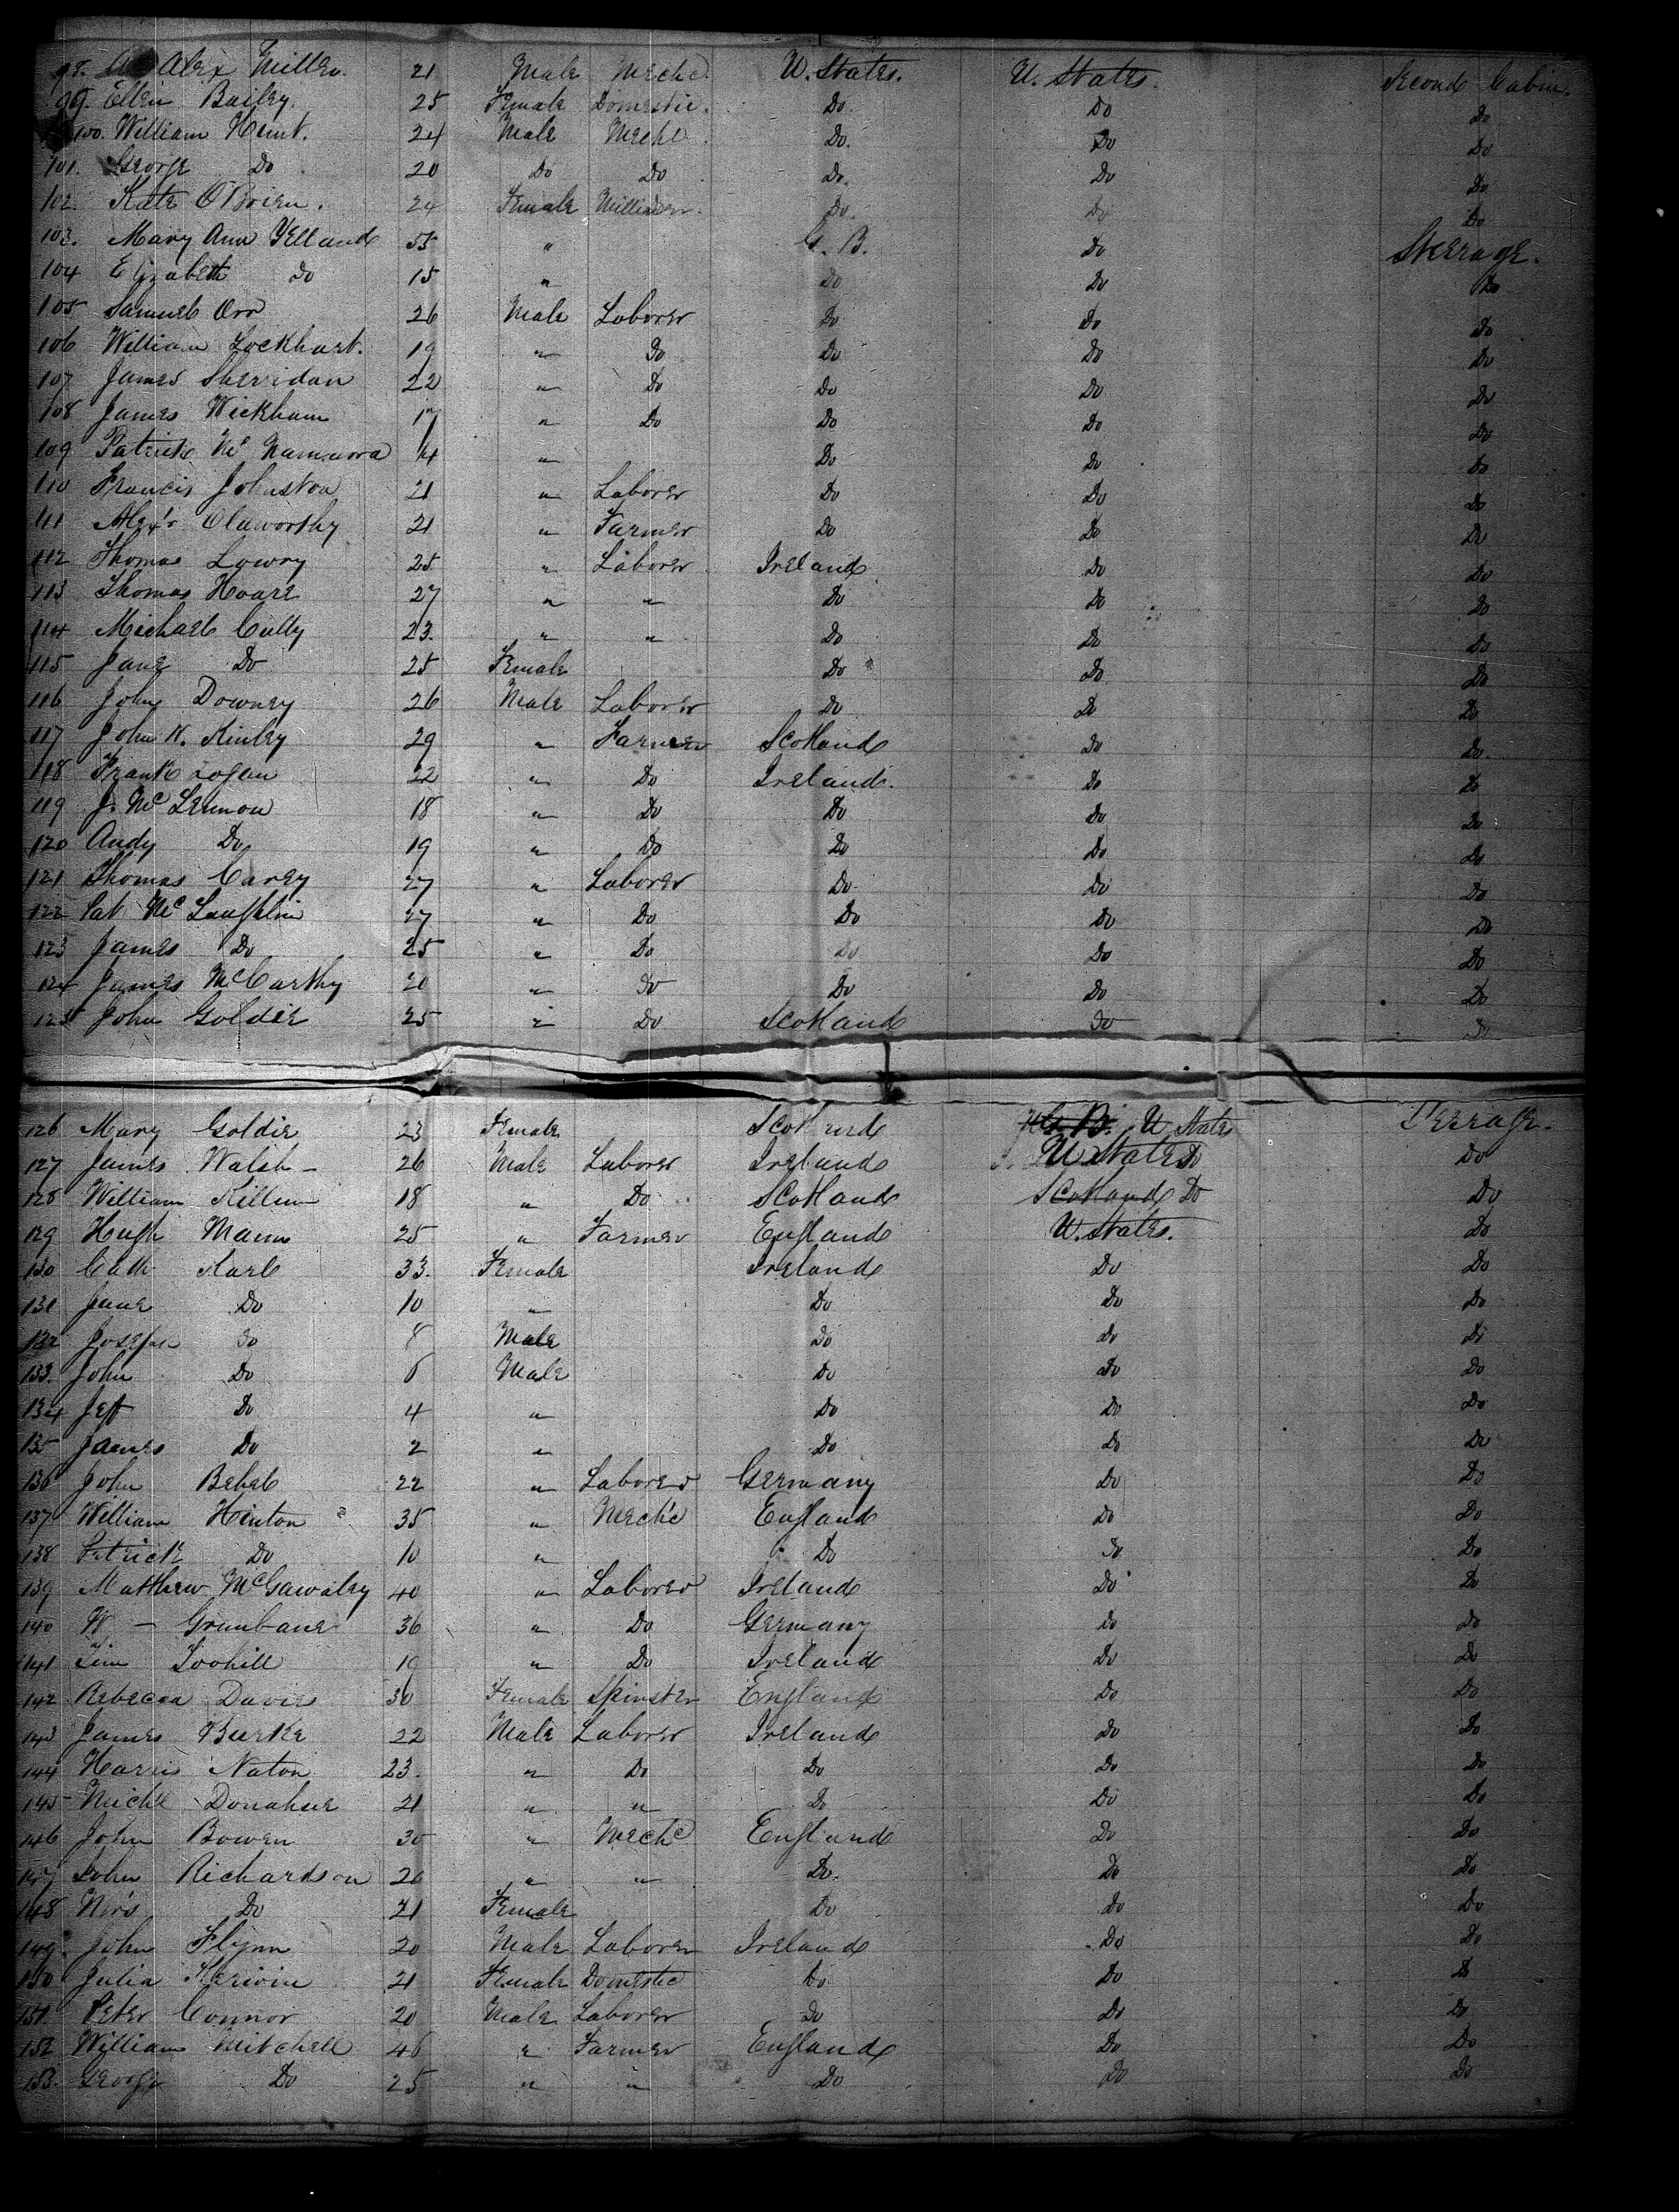 98. Alex Miller. 21 Male Mechc. U. States. U. States. Second Cabin.
99. Ellen Bailey. 25 Female Domestic. Do. Do Do
100. William Hunt. 24 Male Mechc. Do. Do Do
101. George Do 20 Do Do Do. Do Do
102. Kate O'Brien. 24 Female Milliner. Do. Do Do
103. Mary Ann Yelland 55 " G. B. Do Sterrage.
104 Elizabeth Do 15 " Do Do Do
105 Samuel Orr 26 Male Laborer Do Do Do
106 William Lockhart. 19 " Do Do Do Do
107 James Sherridan 22 " Do Do Do Do
108 James Wickham 17 " Do Do Do Do
109 Patrick Mc Namarra 14 " Do Do Do
110 Francis Johnston 21 " Laborer Do Do Do
111 Alex'r Claworthy 21 " Farmer Do Do Do
112 Thomas Lowry 25 " Laborer Ireland Do Do
113 Thomas Hoare 27 " " Do Do Do
114 Michael Cully 23. " " Do Do Do
115 Jane Do 25 Female Do Do Do
116 John Downey 26 Male Laborer Do Do Do
117 John W. Kinley 29 " Farmer Scotland Do Do
118 Frank Logan 22 " Do Ireland. Do Do
119 J. Mc Lennon 18 " Do Do Do Do
120 Andy Do 19 " Do Do Do Do
121 Thomas Carey 27 " Laborer Do. Do Do
122 Pat McLaughlin 27 " Do Do Do Do
123 James Do 25 " Do Do Do Do
124 James McCarthy 20 " Do Do Do Do
125 John Goldie 25 " Do Scotland Do Do
126 Mary Goldie 23 Female Scotland U States Sterrage.
127 James Walsh - 26 Male Laborer Ireland U States Do Do
128 William Killen 18 " Do Scotland Scotland Do Do
129 Hugh Mann 25 " Farmer England U. States. Do
130 Cath Karl 33. Female Ireland Do Do
131 Jane Do 10 " Do Do Do
132 Joseph Do 8 Male Do Do Do
133. John Do 6 Male Do Do Do
134 Jeff Do 4 " Do Do Do
135 James Do 2 " Do Do Do
136 John Bebel 22 " Laborer Germany Do Do
137 William Hinton 35 " Mech'c England Do Do
138 Patrick Do 10 " Do Do Do
139 Matthew McGawaley 40 " Laborer Ireland Do Do
140 W - Grunbane 36 " Do Germany Do Do
141 Tim Toohill 19 " Do Ireland Do Do
142 Rebecca Davis 30 Female Spinster England Do Do
143 James Burke 22 Male Laborer Ireland Do Do
144 Harris Naton 23. " Do Do Do Do
145 Michl Donahue 21 " " Do Do Do
146 John Bowen 30 " Mechc England Do Do
147 John Richardson 26 " " Do. Do Do
148 Mrs Do 21 Female Do Do Do
149 John Flynn 20 Male Laborer Ireland Do Do
150 Julia Kerivin 21 Female Domestic Do Do Do
151. Peter Connor 20 Male Laborer Do Do Do
152 William Mitchell 46 " Farmer England Do Do
153. George Do 25 " " Do Do Do